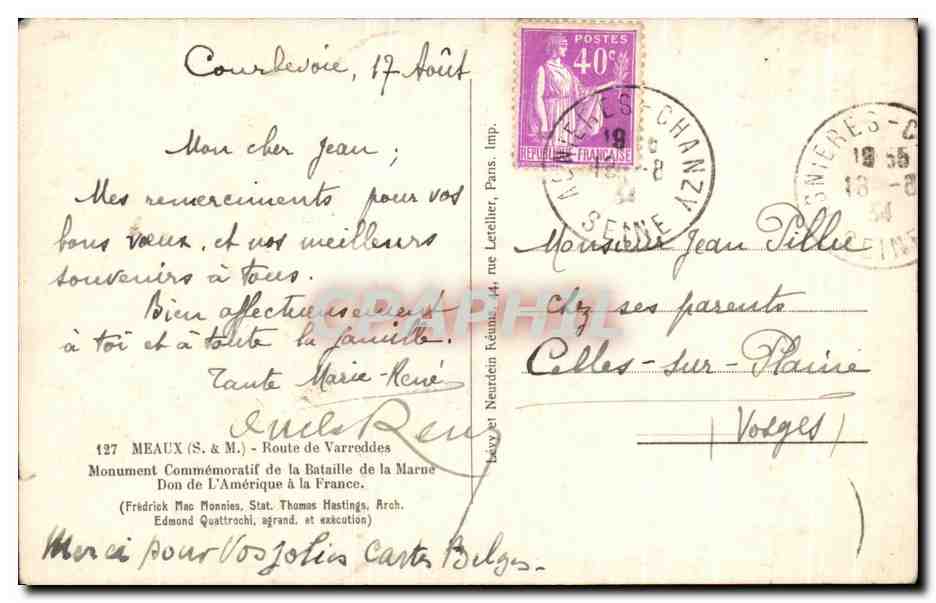 Courbevoie, 17 Août
Mon cher Jean;
Mes remerciments pour vos
bons vœux, et nos meilleurs
souvenirs à tous.
Bien affectueusement
à toi et à toute la famille.
Tante Marie-René
oncle René
127 MEAUX (S. & M.) - Route de Varreddes
Monument Commémoratif de la Bataille de la Marne
Don de L'Amérique à la France.
(Frédrick Mac Monnies, Stat. Thomas Hastings, Arch.
Edmond Quattrochi, agrand. et exécution)
Merci pour Vos jolies cartes Belges.
Lévy et Neurdein Réunis, 44, rue Letellier, Paris. Imp.
POSTES
40c
REPUBLIQUE FRANÇAISE
ASNIERES-CHANZY
18
18 -8
34
SEINE
ASNIERES-C
18 55
18 -8
34
SEINE
Monsieur Jean Pillie
chez ses parents
Celles-sur-Plaine
(Vosges)
CPAPHIL